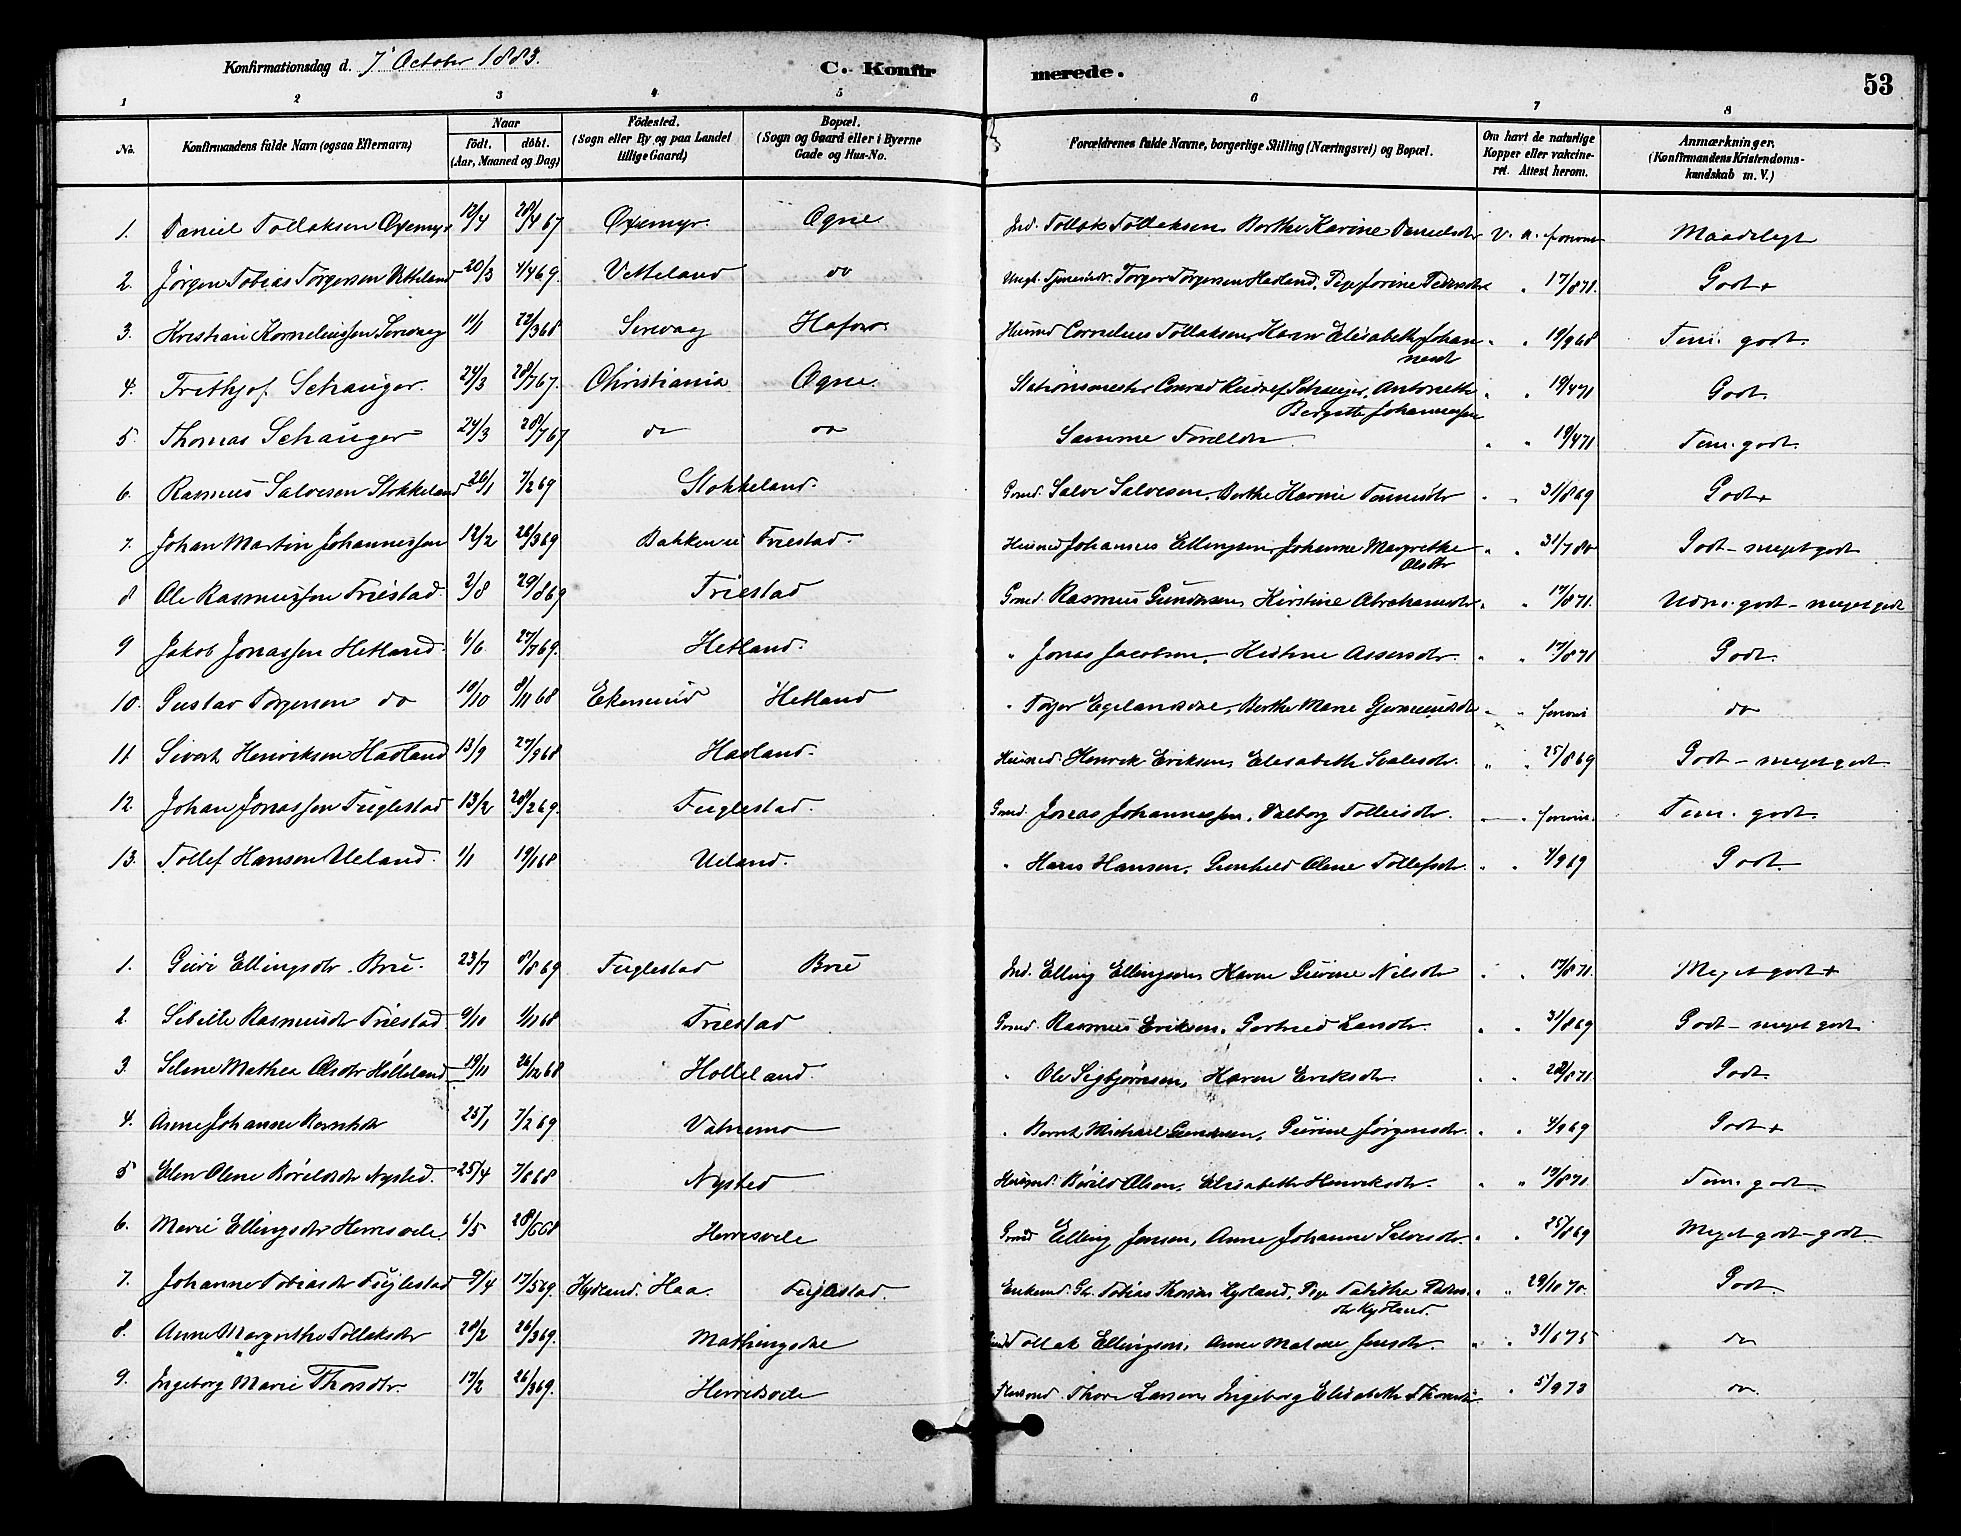 Konfirmationsdag d. 7' October 1883. C. Konfirmerede. 53
1 2 3 4 5 6 7 8
No. Konfirmandens fulde Navn (ogsaa Efternavn) Naar födt. döbt. (Aar, Maaned og Dag) Födested. (Sogn eller By og paa Landet tillige Gaard) Bopæl. (Sogn og Gaard eller i Byerne Gade og Hus-No. Forældrenes fulde Navne, borgerlige Stilling (Næringsvei) og Bopæl. Om havt de naturlige Kopper eller vakcineret. Attest herom. Anmærkninger. (Konfirmandens Kristendomskundskab m. V.)
1. Daniel Tollaksen Oxemyr 12/4 28/4 67 Oxemyr. Ogne Ind. Tollak Tollaksen, Berthe Karine Danielsdr v. a. Maadeligt
2. Jørgen Tobias Torgersen Vetteland 20/3 4/4 69. Vetteland do Torger Torgersen Hadland, Pige Jorine Pedersdr " 17/8 71. Godt +
3. Kristian Korneliussen Sirevaag 1/1 22/3 68 Sirevaag Husmd Cornelius Tollaksen, Karen Elisabeth Johannesd " " 19/9 68 Tem. godt.
4. Frithjof Schanger. 24/3 28/7 67. Christiania Ogne. Stationsmester Conrad Rudolf Schanger, Antonette Bergitte Johannessen " " 19/4 71 Godt.
5. Thomas Schanger 24/3 28/7 67 do do Samme Forældre " " 19/4 71. Tem. godt.
6. Rasmus Salvesen Stokkeland 26/1 7/2 69 Stokkeland. Grmd. Salve Salvesen, Berthe Karine Tønnesdr " " 31/8 69 Godt +
7. Johan Martin Johannessen 12/2 26/3 69 Bakken u Friestad. Husmd Johannes Ellingsen, Johanne Margrethe Olsdr " " 31/7 80 Godt - meget godt
8 Ole Rasmussen Friestad. 2/8 29/8 69 Friestad Grmd. Rasmus Gundersen, Kirstine Abrahamsdr " " 17/8 71. Udm. godt - meget godt
9 Jakob Jonassen Hetland. 6/6 27/7 69. Hetland. " Jonas Jacobsen, Kistine Assersdr. " " 17/8 71 Godt.
10. Gustav Torgersen do 10/10 8/11 68 Ekersund Hetland " Torger Egelandsdal, Berthe Marie " do
11. Sivert Henriksen Hadland 13/9 27/9 68 Hadland. Husmd. Henrik Eriksen, Elisabeth " " 25/8 69 Godt - meget godt
12. Johan Jonassen Fuglestad 13/2 28/2 69. Fuglestad. Grmd. Jonas Johannessen, Valborg Tem. godt.
13. Tollef Hansen Ueland. 1/1 19/1 68 Ueland. " Hans Hansen, Gunhild Olene Tollefsdr. " " 4/9 69 Godt.
1. Guri Ellingsdr. Brue. 23/7 8/8 69 Fuglestad Brue Ind. Elling Ellingsen, Karen Gurine Nilsdr " " 17/8 71. Meget godt +
2. Sibille Rasmusdr Friestad 9/10 1/11 68 Friestad Grmd. Rasmus Eriksen, Gertrud Larsdr. " " 31/8 69 Godt - meget godt
3. Selene Mathea Olsdr Hølleland 19/11 26/12 68 Hølleland. " Ole Sigbjørnsen, Karen Eriksdr. " " 22/8 71. Godt.
4. Anne Johanne Berntsdr 25/1 7/2 69 Vatnemo " Bernt Michael Gundersen, Gurine Jørgensdr. " " 4/9 69 Godt +
5 Elen Olene Børildsdr Nysted. 25/4 7/6 68 Nysted Husmd. Børild Olsen, Elisabeth Henriksdr. " " 17/8 71. Tem. godt
6. Marie Ellingsdr Herresvele. 6/5 28/6 68 Herresvele Grmd Elling Jensen, Anne Johanne Salvesdr. " " 25/8 69 Meget godt - godt.
7. Johanne Tobiasdr Fuglestad 9/4 17/5 69. Hydland. Haa. Fuglestad. Enkemd. Tobias Thorsen Kydland, Pige Tabitha Pedersdr Kydland. " " 29/10 70. Godt.
8. Anne Margrethe Tollaksdr 28/2 26/3 69. Mathingsdal Tollak Ellingsen, Anne Malene Jensdr. " " 31/6 75 do
9. Ingeborg Marie Thorsdr. 17/2 26/3 69. Herredsvele Husmd. Thore Larsen, Ingeborg Elisabeth " 5/9 73 do.